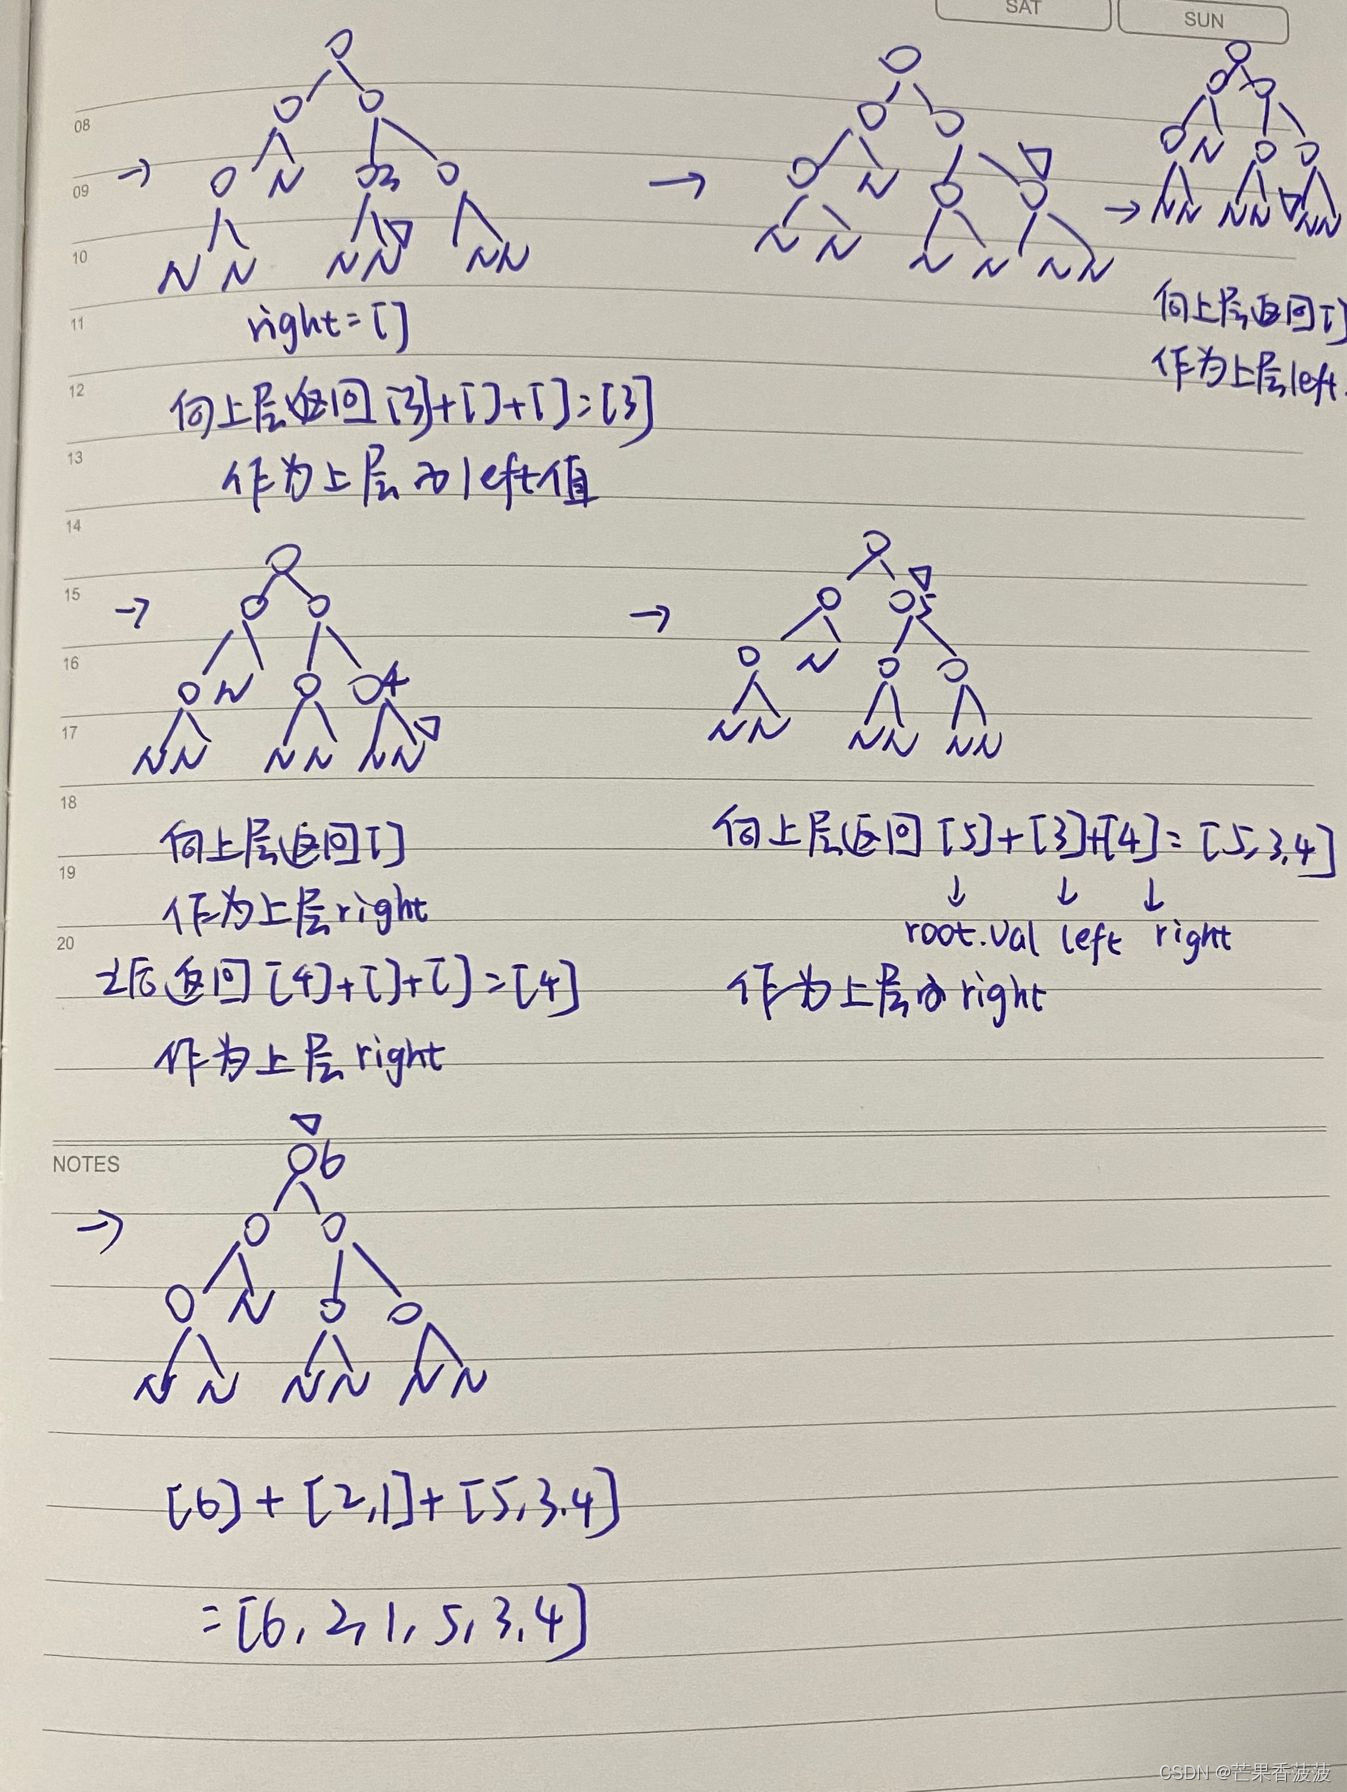 SAT
SUN
08
N
3
N
→
→
09
N
→
N N
N N
N N
10
N N
N N
N N
N N
N N
N N
right=[]
11
向上层返回[]
向上层返回[3]+[]+[]=[3]
12
作为上层left.
作为上层的left值
13
14
→
→
15
5
N
N
4
16
N N
N N
N N
N N
N N
N N
17
18
向上层返回[]
向上层返回[5]+[3]+[4]=[5,3,4]
19
作为上层right
↓ ↓ ↓
root.val left right
20
之后返回[4]+[]+[]=[4]
作为上层的right
作为上层right
NOTES
6
→
N
N N N N N N
[6]+[2,1]+[5,3.4]
=[6,2,1,5,3,4]
CSDN @芒果香菠菠